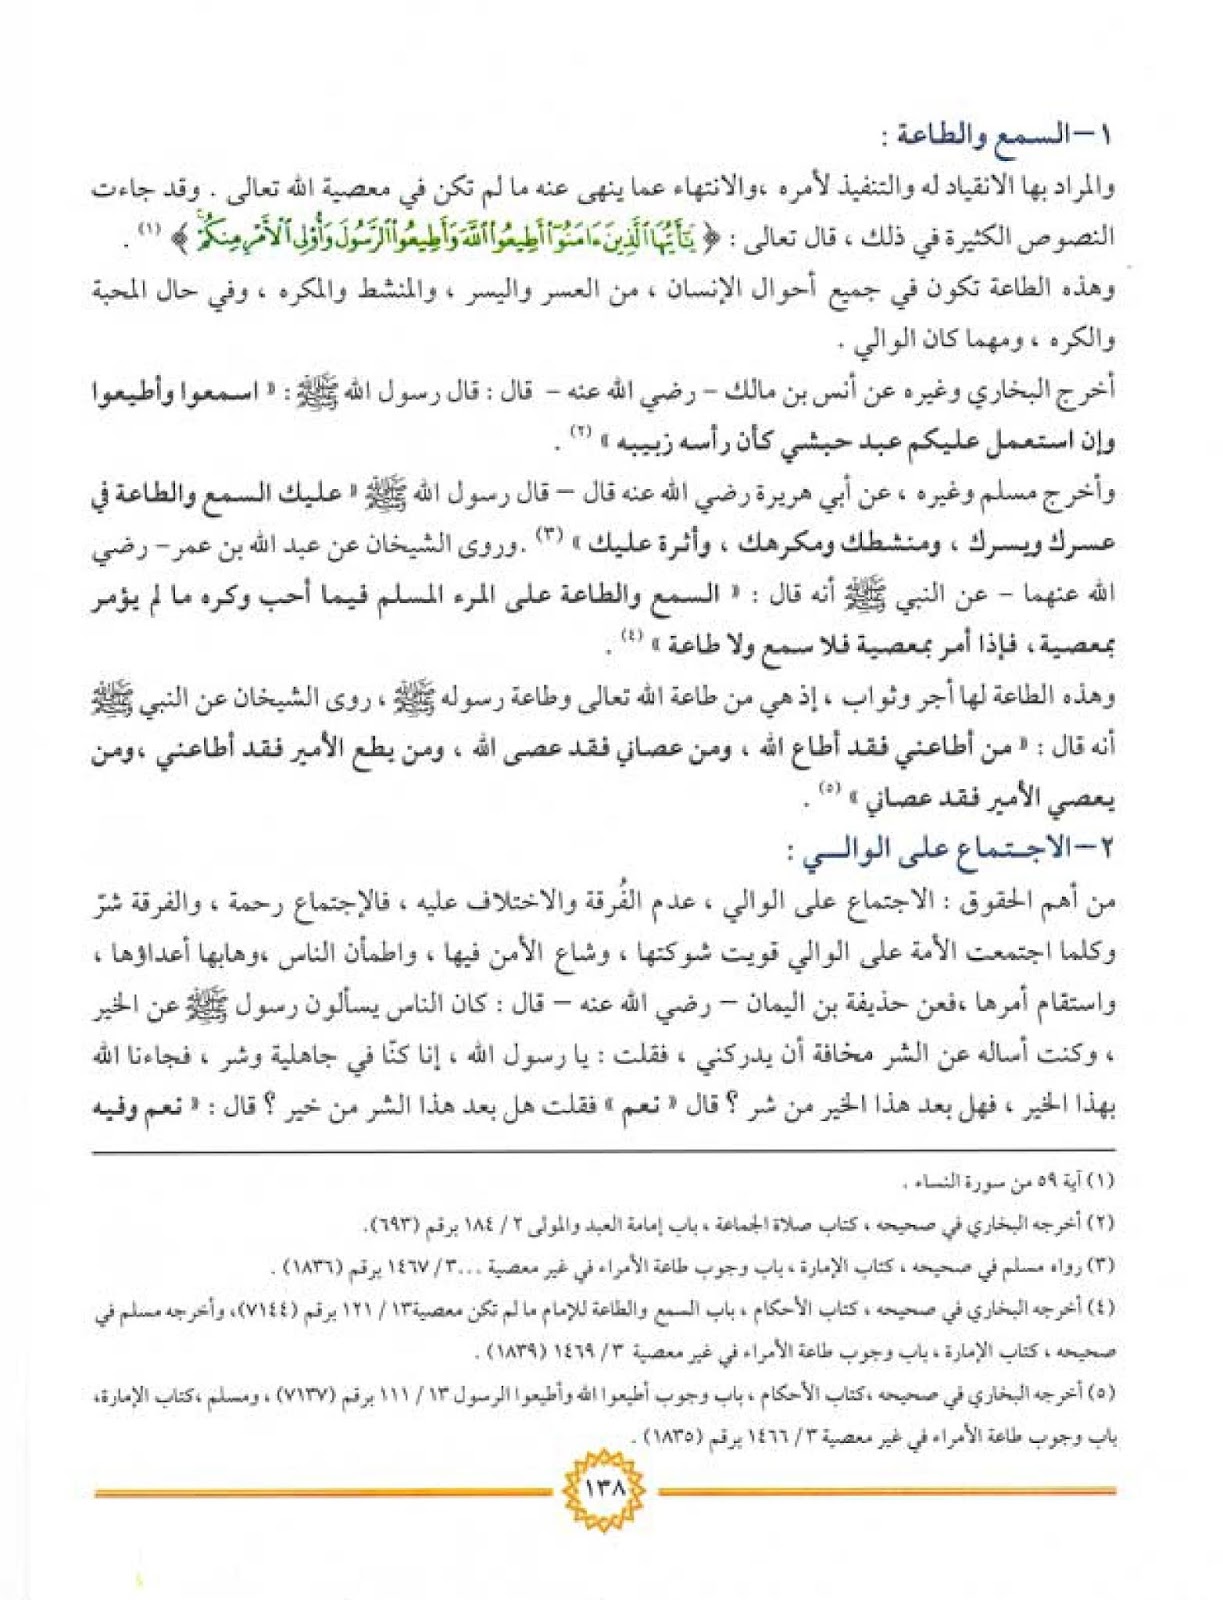 ١-السمع والطاعة :
والمراد بها الانقياد له والتنفيذ لأمره ،والانتهاء عما ينهى عنه ما لم تكن في معصية الله تعالى . وقد جاءت
النصوص الكثيرة في ذلك ، قال تعالى : ﴿ يَٰٓأَيُّهَا ٱلَّذِينَ ءَامَنُوٓا۟ أَطِيعُوا۟ ٱللَّهَ وَأَطِيعُوا۟ ٱلرَّسُولَ وَأُو۟لِى ٱلْأَمْرِ مِنكُمْ ﴾ (١) .
وهذه الطاعة تكون في جميع أحوال الإنسان ، من العسر واليسر ، والمنشط والمكره ، وفي حال المحبة
والكره ، ومهما كان الوالي .
أخرج البخاري وغيره عن أنس بن مالك – رضي الله عنه – قال : قال رسول الله ﷺ : « اسمعوا وأطيعوا
وإن استعمل عليكم عبد حبشي كأن رأسه زبيبه » (٢) .
وأخرج مسلم وغيره ، عن أبي هريرة رضي الله عنه قال – قال رسول الله ﷺ « عليك السمع والطاعة في
عسرك ويسرك ، ومنشطك ومكرهك ، وأثرة عليك » (٣) .وروى الشيخان عن عبد الله بن عمر– رضي
الله عنهما – عن النبي ﷺ أنه قال : « السمع والطاعة على المرء المسلم فيما أحب وكره ما لم يؤمر
بمعصية ، فإذا أمر بمعصية فلا سمع ولا طاعة » (٤) .
وهذه الطاعة لها أجر وثواب ، إذ هي من طاعة الله تعالى وطاعة رسوله ﷺ ، روى الشيخان عن النبي ﷺ
أنه قال : « من أطاعني فقد أطاع الله ، ومن عصاني فقد عصى الله ، ومن يطع الأمير فقد أطاعني ،ومن
يعصي الأمير فقد عصاني » (٥) .
٢-الاجـتماع على الوالـــي :
من أهم الحقوق : الاجتماع على الوالي ، عدم الفُرقة والاختلاف عليه ، فالإجتماع رحمة ، والفرقة شرّ
وكلما اجتمعت الأمة على الوالي قويت شوكتها ، وشاع الأمن فيها ، واطمأن الناس ،وهابها أعداؤها ،
واستقام أمرها ،فعن حذيفة بن اليمان – رضي الله عنه – قال : كان الناس يسألون رسول ﷺ عن الخير
، وكنت أساله عن الشر مخافة أن يدركني ، فقلت : يا رسول الله ، إنا كنّا في جاهلية وشر ، فجاءنا الله
بهذا الخير ، فهل بعد هذا الخير من شر ؟ قال « نعم » فقلت هل بعد هذا الشر من خير ؟ قال : « نعم وفيه
(١) آية ٥٩ من سورة النساء .
(٢) أخرجه البخاري في صحيحه ، كتاب صلاة الجماعة ، باب إمامة العبد والمولى ٢ / ١٨٤ برقم (٦٩٣).
(٣) رواه مسلم في صحيحه ، كتاب الإمارة ، باب وجوب طاعة الأمراء في غير معصية ...٣/ ١٤٦٧ برقم (١٨٣٦) .
(٤) أخرجه البخاري في صحيحه ، كتاب الأحكام ، باب السمع والطاعة للإمام ما لم تكن معصية١٣ / ١٢١ برقم (٧١٤٤)، وأخرجه مسلم في
صحيحه ، كتاب الإمارة ، باب وجوب طاعة الأمراء في غير معصية ٣ / ١٤٦٩ (١٨٣٩) .
(٥) أخرجه البخاري في صحيحه ،كتاب الأحكام ، باب وجوب أطيعوا الله وأطيعوا الرسول ١٣ / ١١١ برقم (٧١٣٧) ، ومسلم ،كتاب الإمارة،
باب وجوب طاعة الأمراء في غير معصية ٣/ ١٤٦٦ برقم (١٨٣٥) .
١٣٨